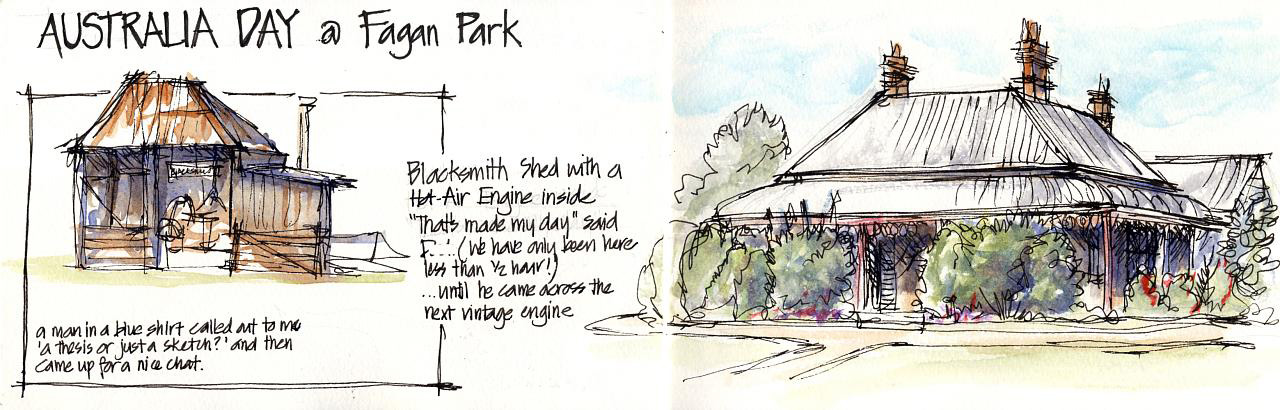 AUSTRALIA DAY @ Fagan Park
Blacksmith Shed with a
Hot-Air Engine inside
"That's made my day" said
F....! (we have only been here
less than ½ hour!)
...until he came across the
next vintage engine
a man in a blue shirt called out to me
'a thesis or just a sketch?' and then
came up for a nice chat.